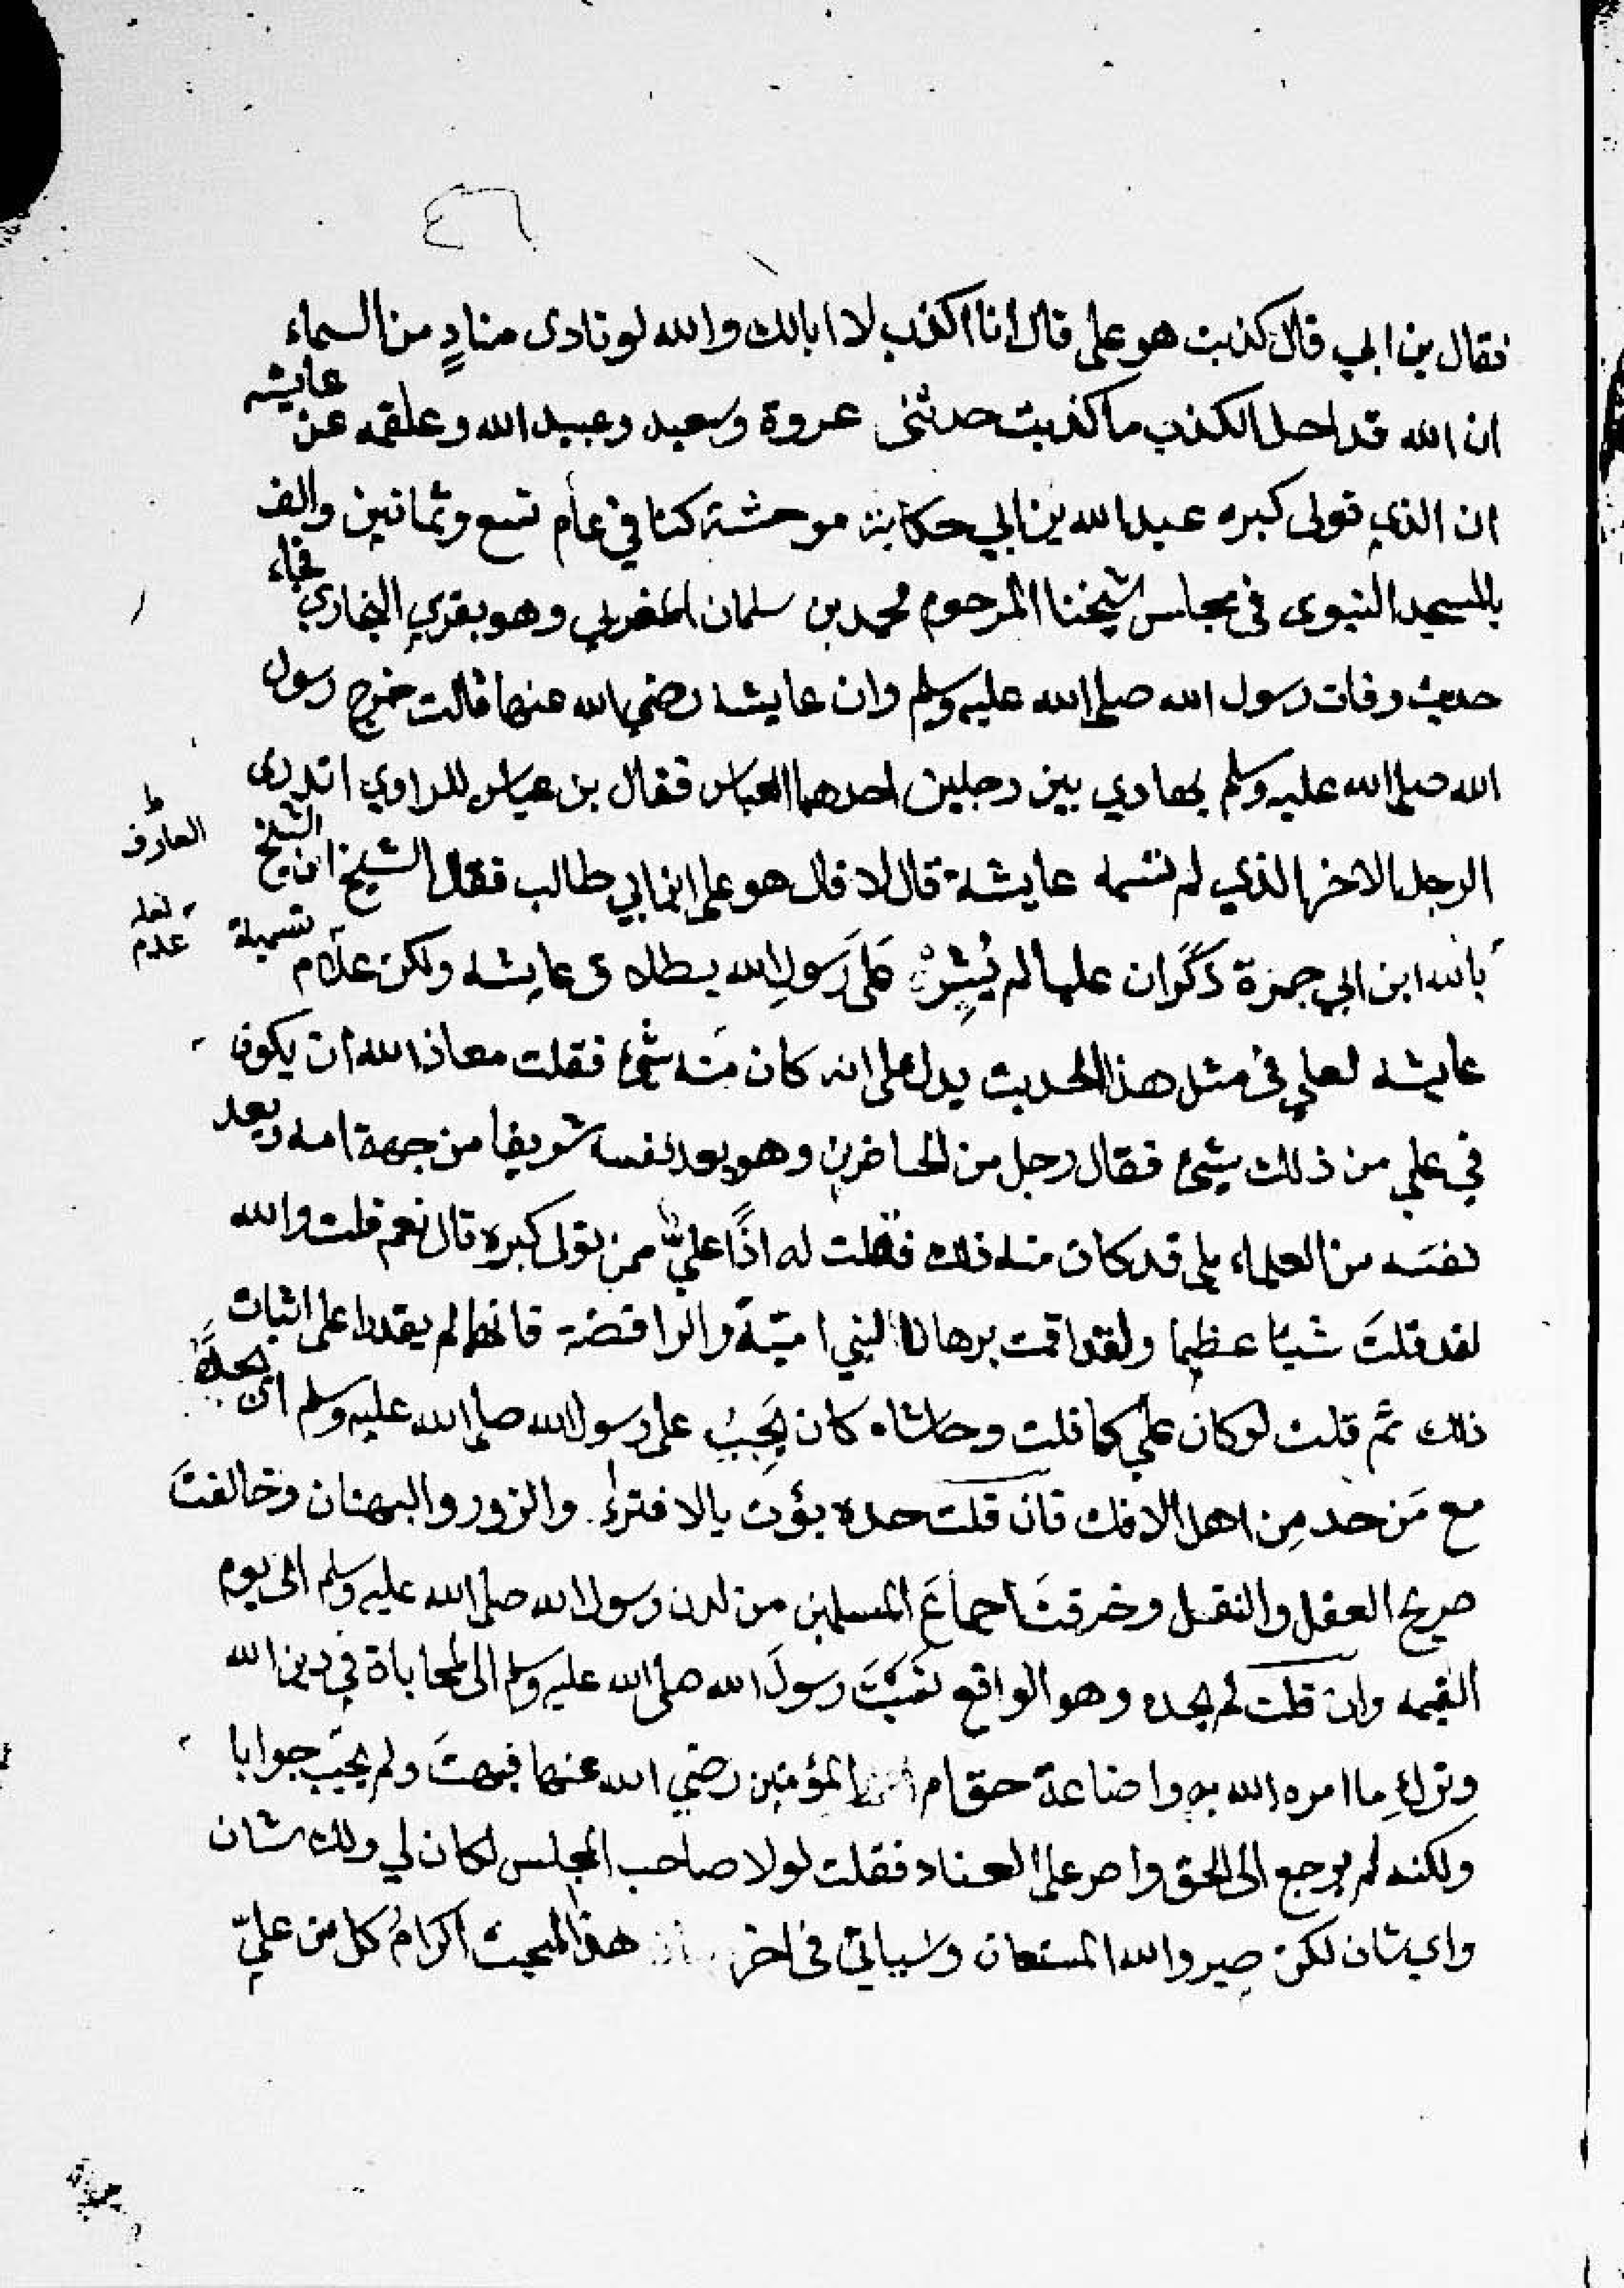 ٤٦
فقال بن ابي قال كذبت هو علي قال انا اكذب لا ابالك والله لو نادى منادٍ من السماء
ان الله قد احل الكذب ما كذبت حدثني عروة وسعيد وعبيد الله وعلقمه عن عايشه
ان الذي تولى كبره عبد الله بن ابي حكاية موحشة كنا في عام تسع وثمانين والف
بالمسجد النبوى فى مجلس شيخنا المرحوم محمد بن سلمان المغربي وهو يقري البخاري فجاء
حديث وفات رسول الله صلى الله عليه وسلم وان عايشا رضي الله عنها قالت خرج رسول
الله صلى الله عليه وسلم يهادي بين رجلين احدهما العباس فقال بن عباس للراوي اتدرى
الرجل الاخر الذي لم تسمه عايشة قال لا قال هو علي ابن ابي طالب فقال الشيخ ان الشيخ
العارف
بالله ابن ابي جمرة ذكر ان عليا لم يُشِرْ على رسول الله بطلاق عايشه ولكن علام تسمية
لعله عدم
عايشه لعلي في مثل هذا الحديث يدل على انه كان منه شئ فقلت معاذ الله ان يكون
في علي من ذلك شئ فقال رجل من الحاضرين وهو يعد نفسه شريفا من جهة امه ويعد
نفسه من العلماء بلى قد كان منه ذلك فقلت له اذًا عليٌّ ممن تولى كبره قال نعم قلت والله
لقد قلتَ شيًا عظيما ولقد اقمت برهانا لبني اميّة والرافضة فانهم لم يقدروا على اثبات
ذلك ثم قلت لو كان علي كما قلت وحاشاه كان يَجِبُ على رسول الله صلى الله عليه وسلم ان يحدَّه
مع مَن حد مِن اهل الافك فان قلت حده بؤت بالافتراء والزور والبهتان وخالفتَ
صريح العقل والنقل وخرقتَ اجماعَ المسلمين من لدن رسول الله صلى الله عليه وسلم الى يوم
القيمه وان قلت لم يحده وهو الواقع نسَبْتَ رسولَ الله صلى الله عليه وسلم الى المحاباة في دين الله
وتركِ ما امره الله به واضاعة حق ام المؤمنين رضي الله عنها فبهتَ ولم يجبَ جوابا
ولكنه لم يرجع الى الحق واصر على العناد فقلت لولا صاحب المجلس لكان لي ولك شان
واي شان لكن صبر والله المستعان وسياتي فى اخر هذا المبحث اكرامُ كل من عليّ